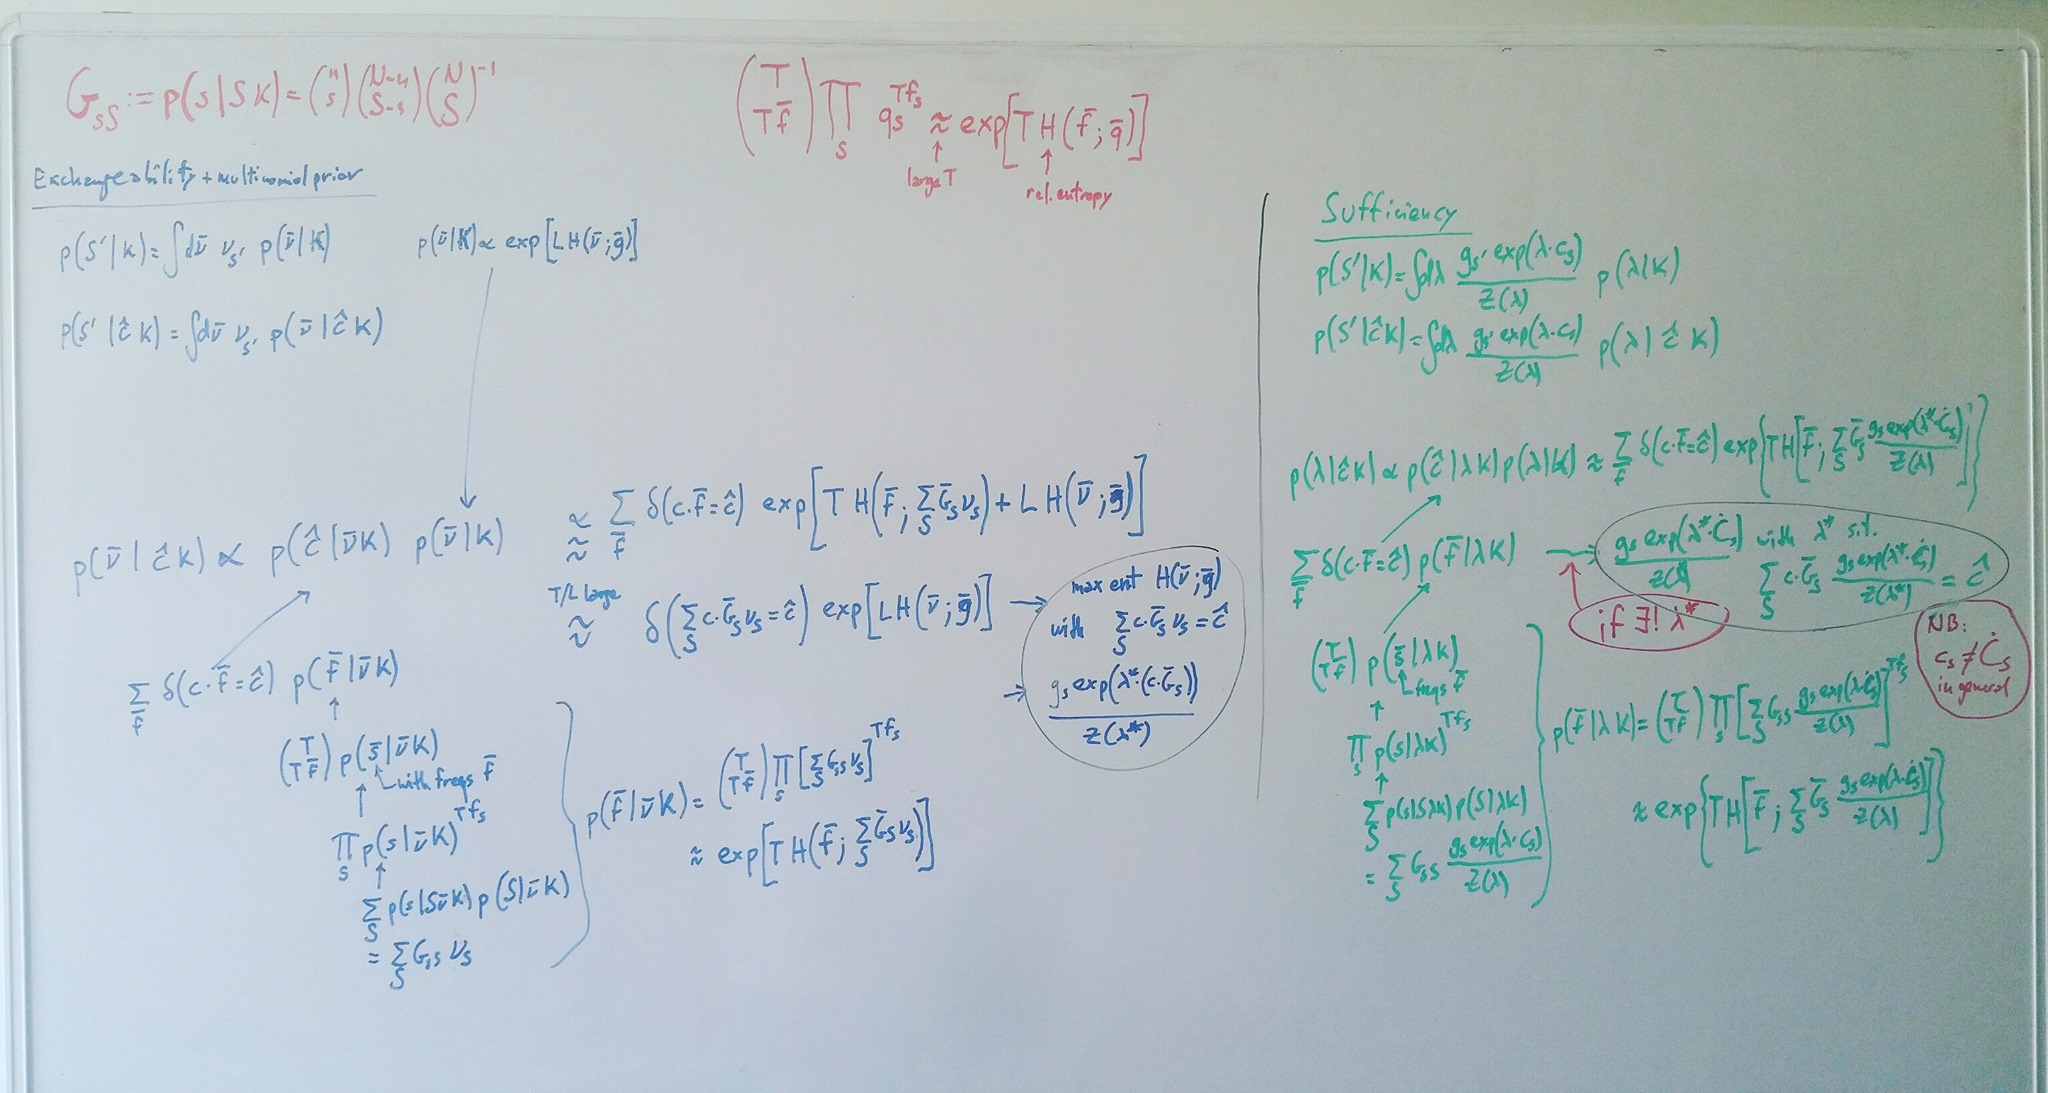 G_{sS} := p(s|S K) = (n s)(N-n S-s)(N S)^{-1}
(T Tf̄) ∏_s q_s^{Tf_s} ≈ exp[T H(f̄; q̄)]
↑ large T
↑ rel. entropy
Exchangeability + multinomial prior
p(S'|K) = ∫dν̄ ν_{S'} p(ν̄|K)
p(ν̄|K) ∝ exp[L H(ν̄; ḡ)]
p(S'|ĉ K) = ∫dν̄ ν_{S'} p(ν̄|ĉ K)
p(ν̄|ĉ K) ∝ p(ĉ|ν̄K) p(ν̄|K)
∝ ≈ Σ_f̄ δ(c·f̄=ĉ) exp[T H(f̄; Σ_S Ḡ_S ν_S) + L H(ν̄; ḡ)]
T/L large
≈ δ(Σ_S c·Ḡ_S ν_S = ĉ) exp[L H(ν̄; ḡ)] →
max ent H(ν̄; ḡ)
with Σ_S c·Ḡ_S ν_S = ĉ
→ g_S exp(λ*·(c·Ḡ_S)) / Z(λ*)
Σ_f̄ δ(c·f̄=ĉ) p(f̄|ν̄K)
↑
(T Tf̄) p(s̄|ν̄K)
with freqs f̄
↑
∏_s p(s|ν̄K)^{Tf_s}
↑
Σ_S p(s|Sν̄K) p(S|ν̄K)
= Σ_S G_{sS} ν_S
p(f̄|ν̄K) = (T Tf̄) ∏_s [Σ_S G_{sS} ν_S]^{Tf_s}
≈ exp[T H(f̄; Σ_S Ḡ_S ν_S)]
Sufficiency
p(S'|K) = ∫dλ g_{S'} exp(λ·c_S) / Z(λ) p(λ|K)
p(S'|ĉK) = ∫dλ g_{S'} exp(λ·c_S) / Z(λ) p(λ|ĉ K)
p(λ|ĉK) ∝ p(ĉ|λK) p(λ|K) ≈ Σ_f̄ δ(c·f̄=ĉ) exp{T H[f̄; Σ_S Ḡ_S g_S exp(λ*·Ċ_S) / Z(λ)]}
Σ_f̄ δ(c·f̄=ĉ) p(f̄|λK) →
g_S exp(λ*·Ċ_S) / Z(λ*) with λ* s.t.
Σ_S c·Ḡ_S g_S exp(λ*·Ċ_S) / Z(λ*) = ĉ
if ∃! λ*
NB:
c_s ≠ Ċ_S
in general
(T Tf̄) p(s̄|λK)
freqs f̄
↑
∏_s p(s|λK)^{Tf_s}
↑
Σ_S p(s|SλK) p(S|λK)
= Σ_S G_{sS} g_S exp(λ·C_S) / Z(λ)
p(f̄|λK) = (T Tf̄) ∏_s [Σ_S G_{sS} g_S exp(λ·Ċ_S) / Z(λ)]^{Tf_s}
≈ exp{T H[f̄; Σ_S Ḡ_S g_S exp(λ·Ċ_S) / Z(λ)]}